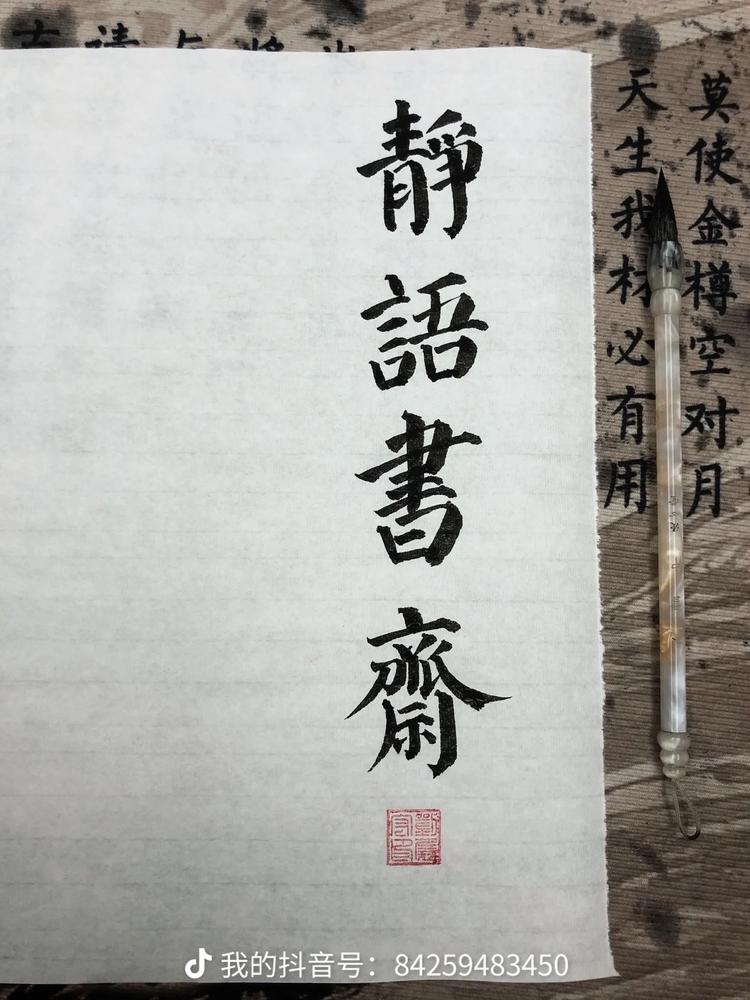 靜語書齋
莫使金樽空对月
天生我材必有用
我的抖音号：84259483450